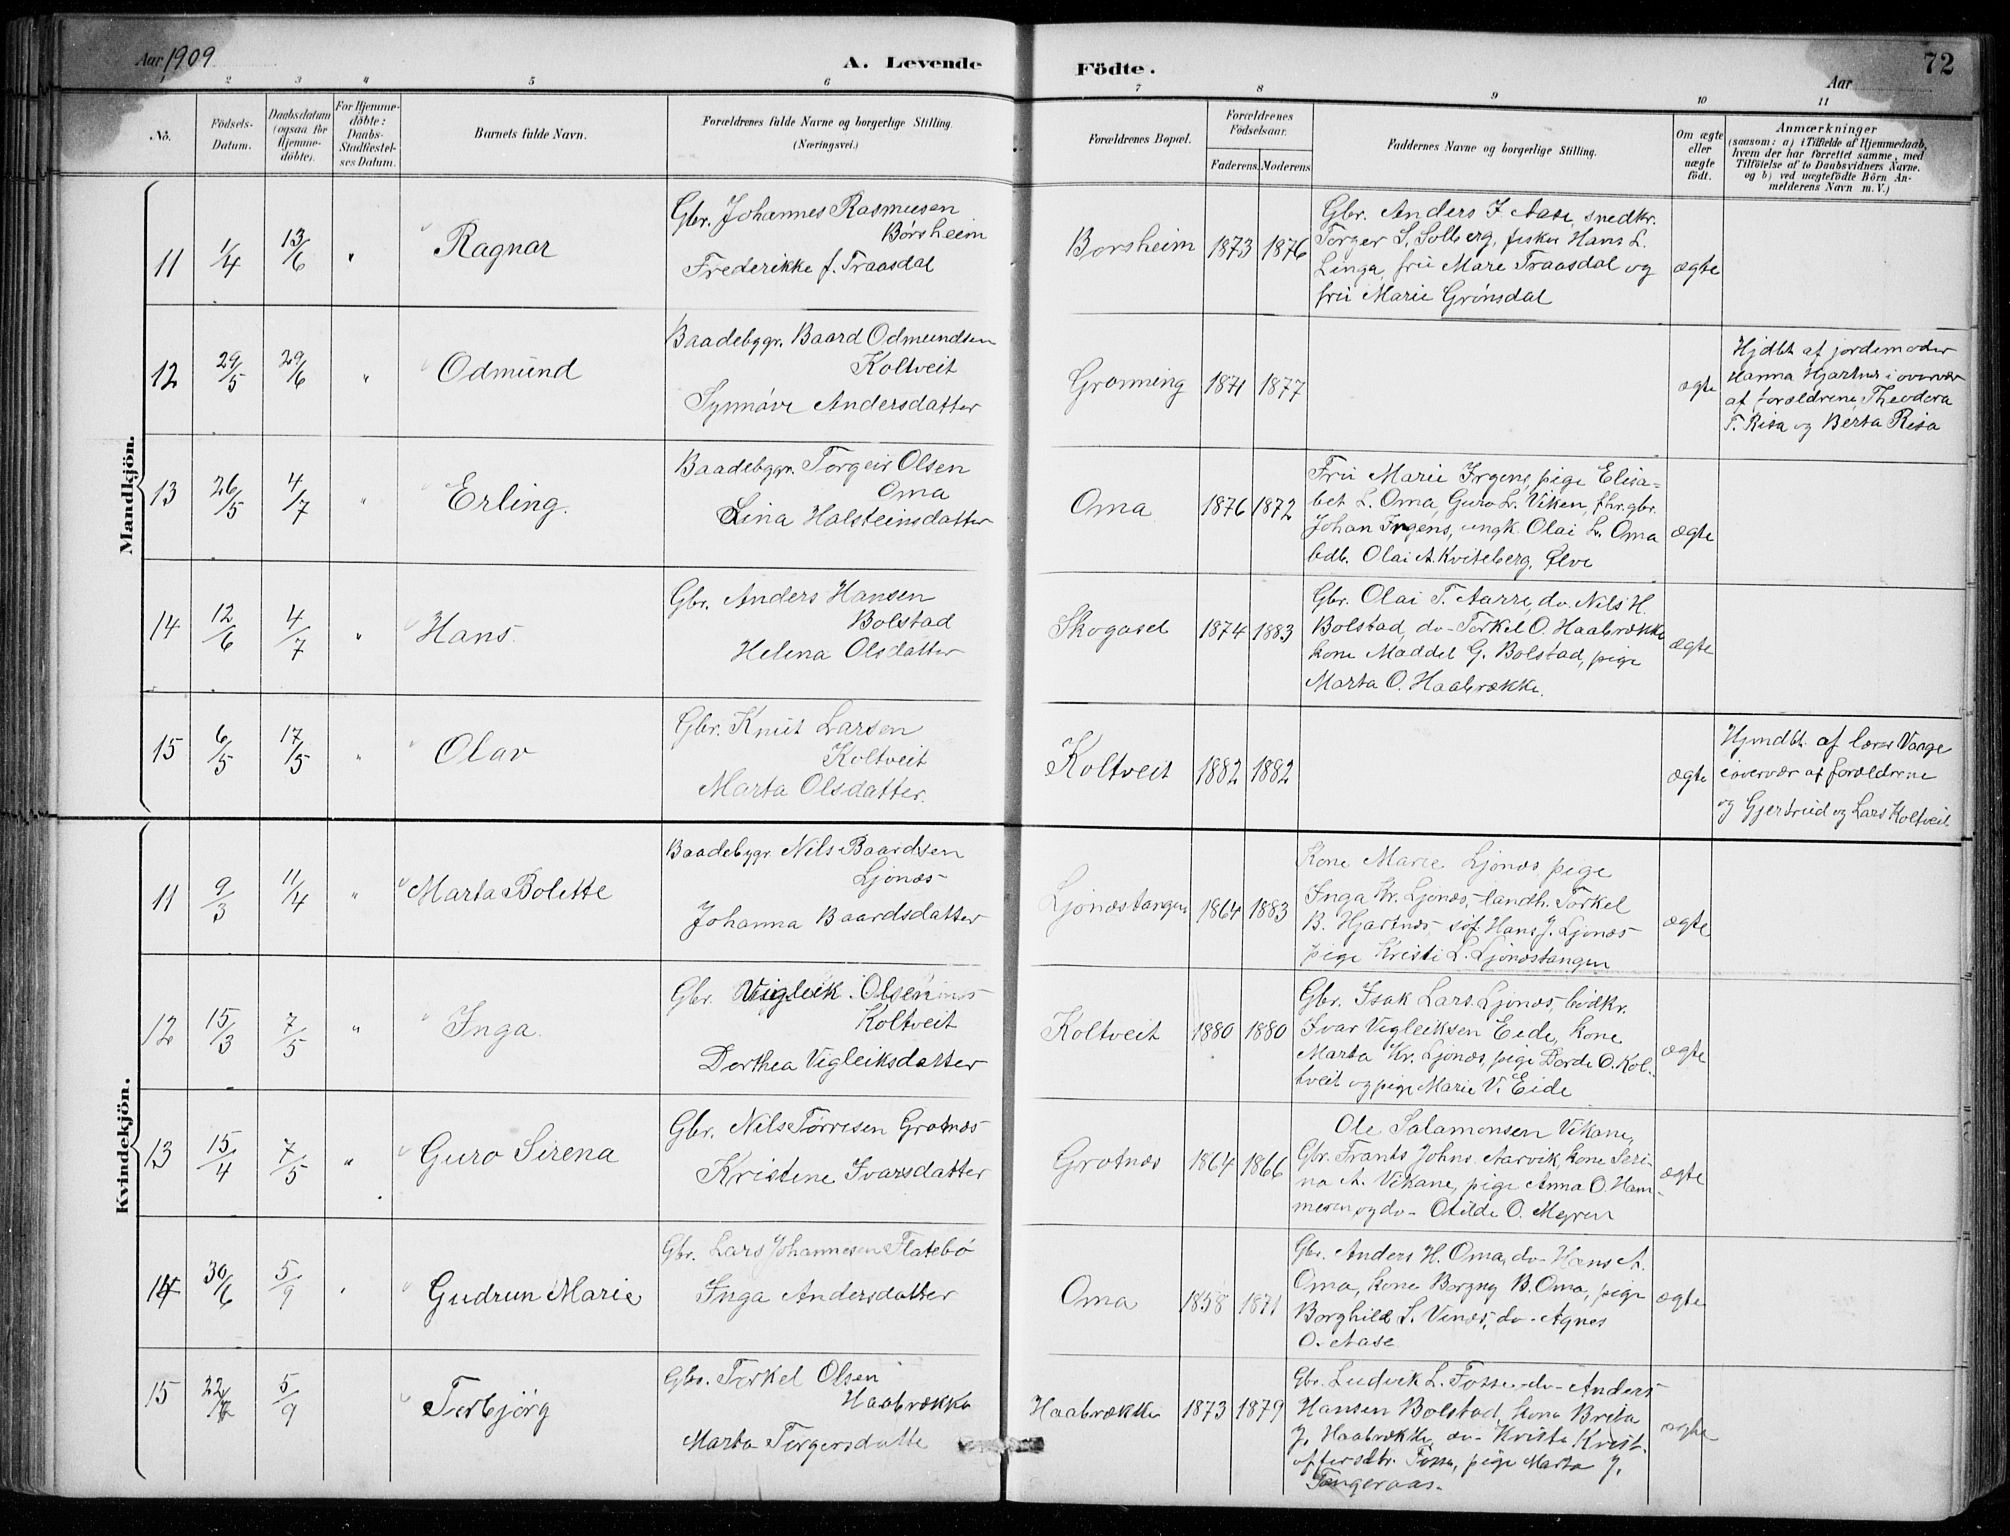 Aar 1909
A. Levende
Födte.
Aar
72
2 3 4 5 6 7 8 9 10 11
No.
Födsels-
Datum.
Daabsdatum
(ogsaa for
Hjemme-
döbte).
For Hjemme-
döbte:
Daabs-
Stadfæstel-
ses Datum.
Barnets fulde Navn.
Forældrenes fulde Navne og borgerlige Stilling.
(Næringsvei.)
Forældrenes Bopæl.
Forældrenes
Födselsaar.
Faderens.
Moderens
Faddernes Navne og borgerlige Stilling.
Om ægte
eller
uægte
födt.
Anmærkninger
(saasom: a) i Tilfælde af Hjemmedaab,
hvem der har forrettet samme, med
Tilföielse af to Daabsvidners Navne.
og b) ved uægtefödte Börn An-
melderens Navn m. V.)
Mandkjön.
11 1/4 13/6 " Ragnar
Gbr. Johannes Rasmusen
Børsheim
Frederikke f. Traasdal
Borsheim 1873 1876
Gbr. Anders J. Aase, snedkr.
Torger S. Solberg, fisker Hans L.
Linga, frü Mare Traasdal og
frü Marie Grønsdal
ægte
12 29/5 29/6 " Odmünd
Baadebyggr. Baard Odmundsen
Koltveit
Synnøve Andersdatter
Gronning 1871 1877
ægte
Hjdbt. af jordemoder
Hanna Hjartnes i overvær
af forældrene, Theodora
T. Risa og Berta Risa
13 26/5 4/7 " Erling.
Baadebyggr. Torgeir Olsen
Oma
Lina Halsteinsdatter
Oma 1876 1872
Frü Marie Irgens, pige Elisa-
bet L. Oma, Guro L. Viken, fhv. gbr.
Johan Irgens, ungk. Olai L. Oma
bdb. Olai A. Kviteberg, Ølve
ægte
14 12/6 4/7 " Hans.
Gbr. Anders Hansen
Bolstad
Helena Olsdatter
Skogasel 1874 1883
Gbr. Olai T. Aarre, do. Nils H.
Bolstad, do- Torkel O. Haabrække
kone Maddel G. Bolstad, pige
Marta O. Haabrække.
ægte
15 6/5 17/5 " Olav
Gbr. Knüt Larsen
Koltveit
Marta Olsdatter.
Koltveit 1882 1882
ægte
Hjmdbt. af lærer Vange
i overvær af forældrene
og Gjertrud og Lars Koltveit
Kvindekjön.
11 9/3 11/4 " Marta Bolette
Baadebyggr. Nils Baardsen
Ljonæs
Johanna Baardsdatter
Ljonæstangen 1864 1883
Kone Marie Ljonæs, pige
Inga Kr. Ljonæs, landh. Torkel
B. Hjartnæs søf. Hans J. Ljonæs
pige Kristi L. Ljonæstangen
ægte
12 15/3 7/5 " Inga.
Gbr. Vigleik Olsen
Koltveit
Dorthea Vigleiksdatter
Koltveit 1880 1880
Gbr. Isak Lars. Ljonæs, bødkr.
Ivar Vigleiksen Eide, kone
Marta Kr. Ljonæs, pige Dorde O. Kol-
tveit og pige Marie V. Eide
ægte
13 15/4 7/5 " Guro Sirena
Gbr. Nils Tørresen Grotnæs
Kristine Ivarsdatter
Grotnæs 1864 1866
Ole Salamonsen Vikane,
Gbr. Frants Johns. Aarvik, kone Seri-
na A. Vikane, pige Anna O. Ham-
meren og do- Otilde O. Myren
ægte
14 30/6 5/9 " Gudrun Marie
Gbr. Lars Johannesen Flatebø
Inga Andersdatter
Oma 1858 1871
Gbr. Anders H. Oma, do- Hans A.
Oma, kone Borgny B. Oma, pige
Borghild S. Vinæs, do- Agnes
O. Aase
ægte
15 22/7 5/9 Torbjörg
Gbr. Torkel Olsen
Haabrække
Marta Torgersdatte
Haabrække 1873 1879
Gbr. Ludvik L. Fosse, do- Anders
Hansen Bolstad, kone Brita
J. Haabrække, do- Kristi Krist-
offersdtr. Fosse, pige Marta J.
Tangeraas.
ægte